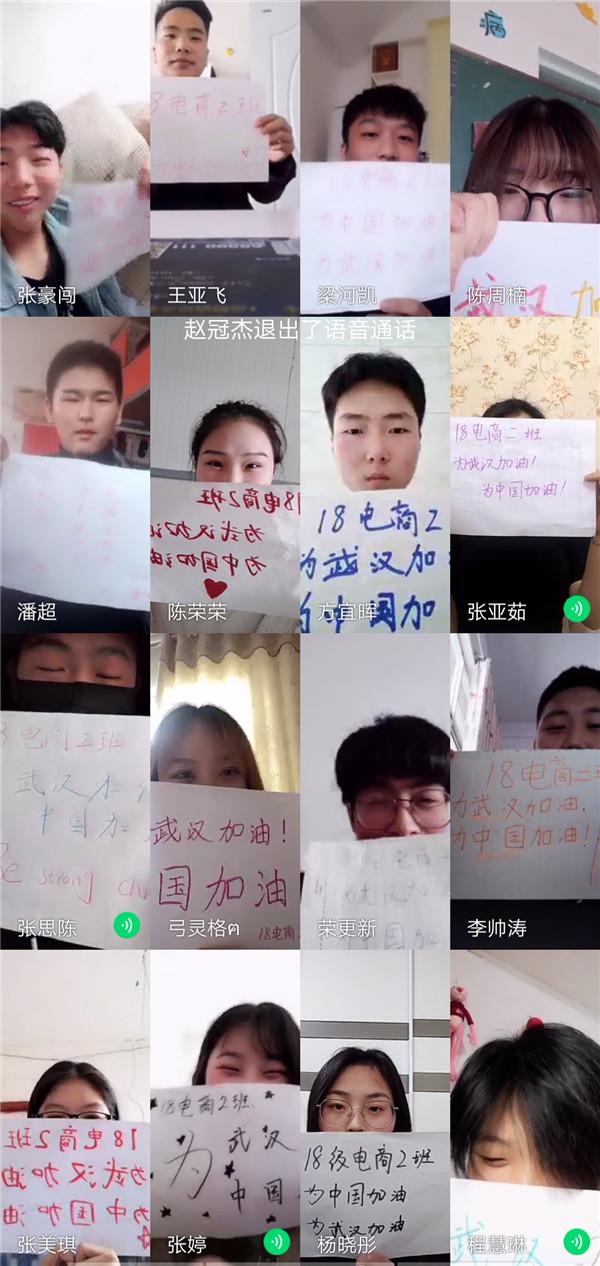 18电商2班
18电商
为中国加油
为武汉加油
病
武汉加
张豪闯
王亚飞
梁河凯
陈周楠
赵冠杰退出了语音通话
18电商2班
为武汉加油
为中国加油
18电商2
为武汉加
为中国加
18电商二班
为武汉加油!
为中国加油!
潘超
陈荣荣
方宜晖
张亚茹
电商2班
武汉加
中国加
Be strong
武汉加油!
国加油
18电商2
18电商二班
为武汉加油.
为中国加油!!
张思陈
弓灵格ฅ
荣更新
李帅涛
18电商2班
为武汉加油
为中国加油
18电商2班
为
武汉
中国
18级电商2班
为中国加油
为武汉加油
武汉
张美琪
张婷
杨晓彤
程慧琳